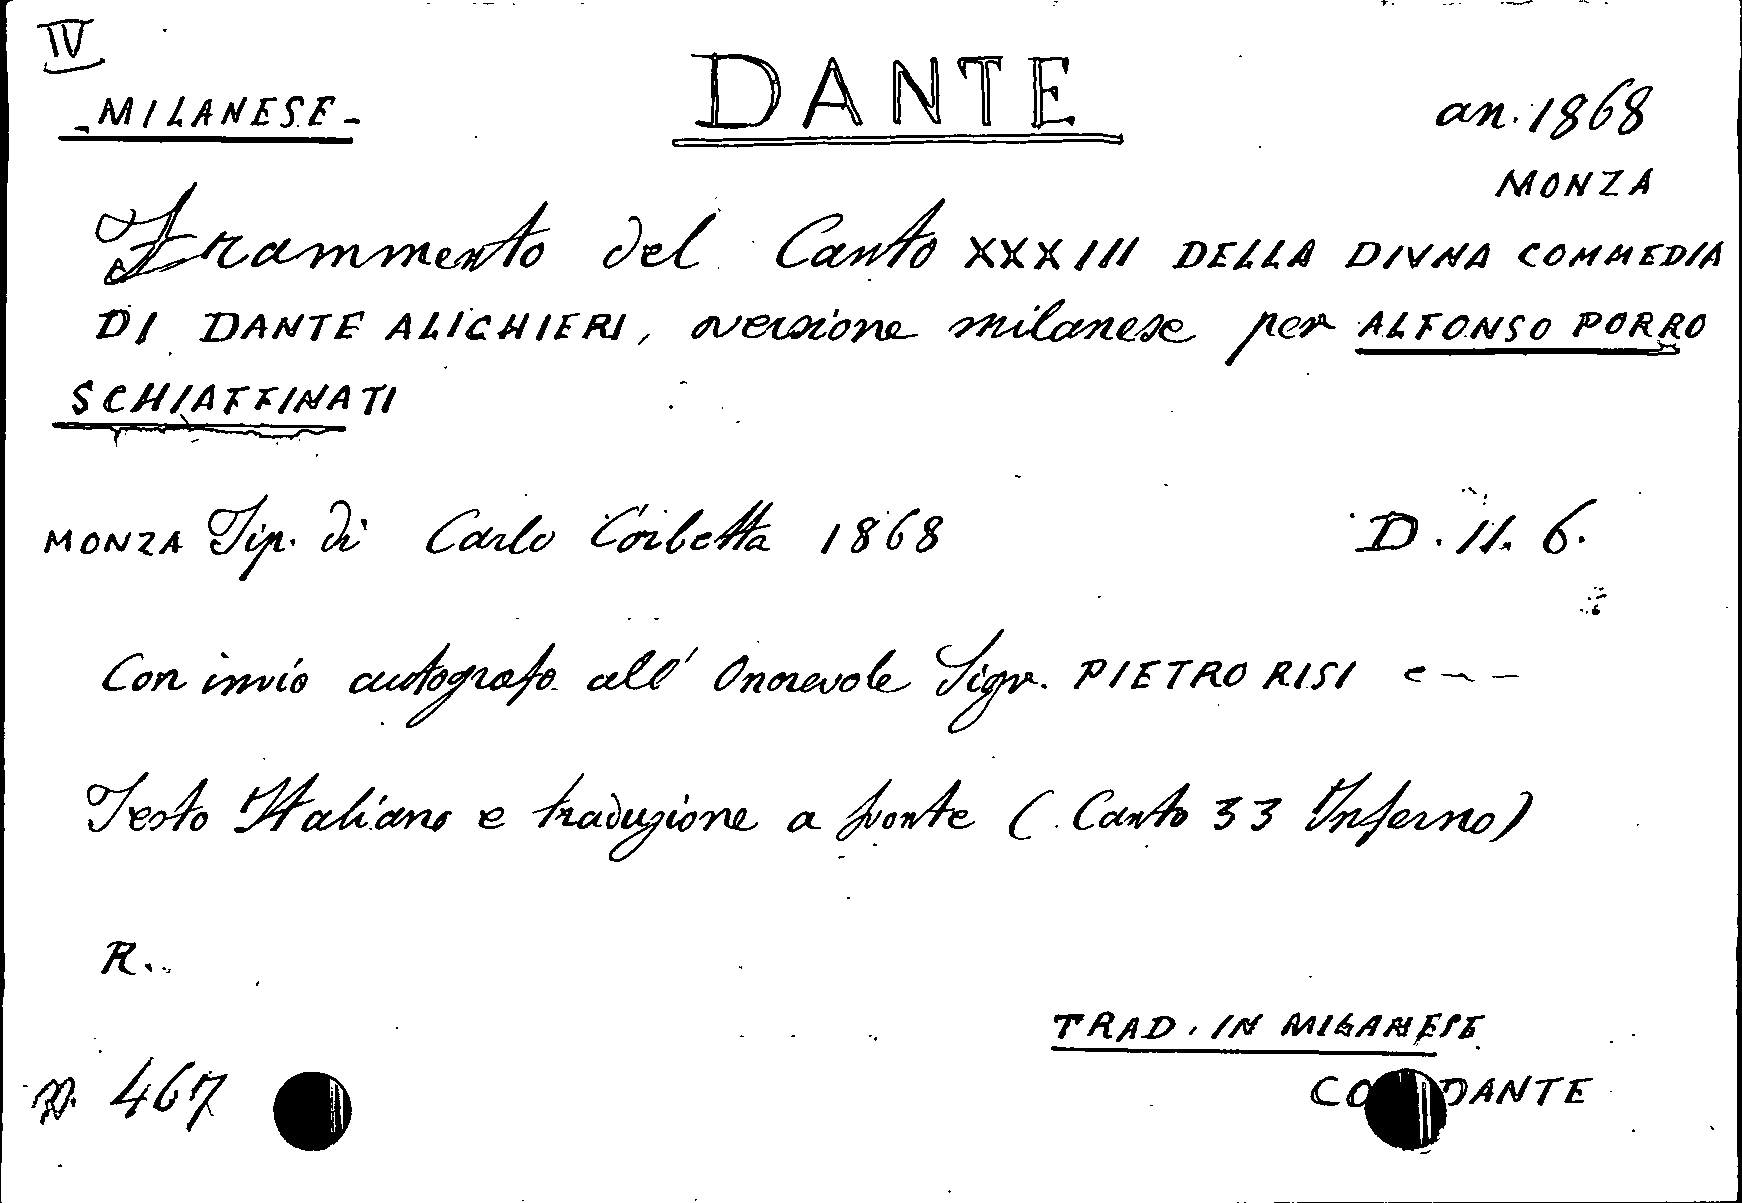 IV
- MILANESE -
DANTE
an. 1868
MONZA
Frammento del Canto XXXIII DELLA DIVINA COMMEDIA
DI DANTE ALIGHIERI, versione milanese per ALFONSO PORRO
SCHIAFFINATI
MONZA Tip. di Carlo Corbetta 1868
D. 11. 6.
Con invio autografo all' Onorevole Sigr. PIETRO RISI e---
Testo Italiano e traduzione a fronte (Canto 33 Inferno)
R.
TRAD. IN MILANESE
N. 467
DANTE